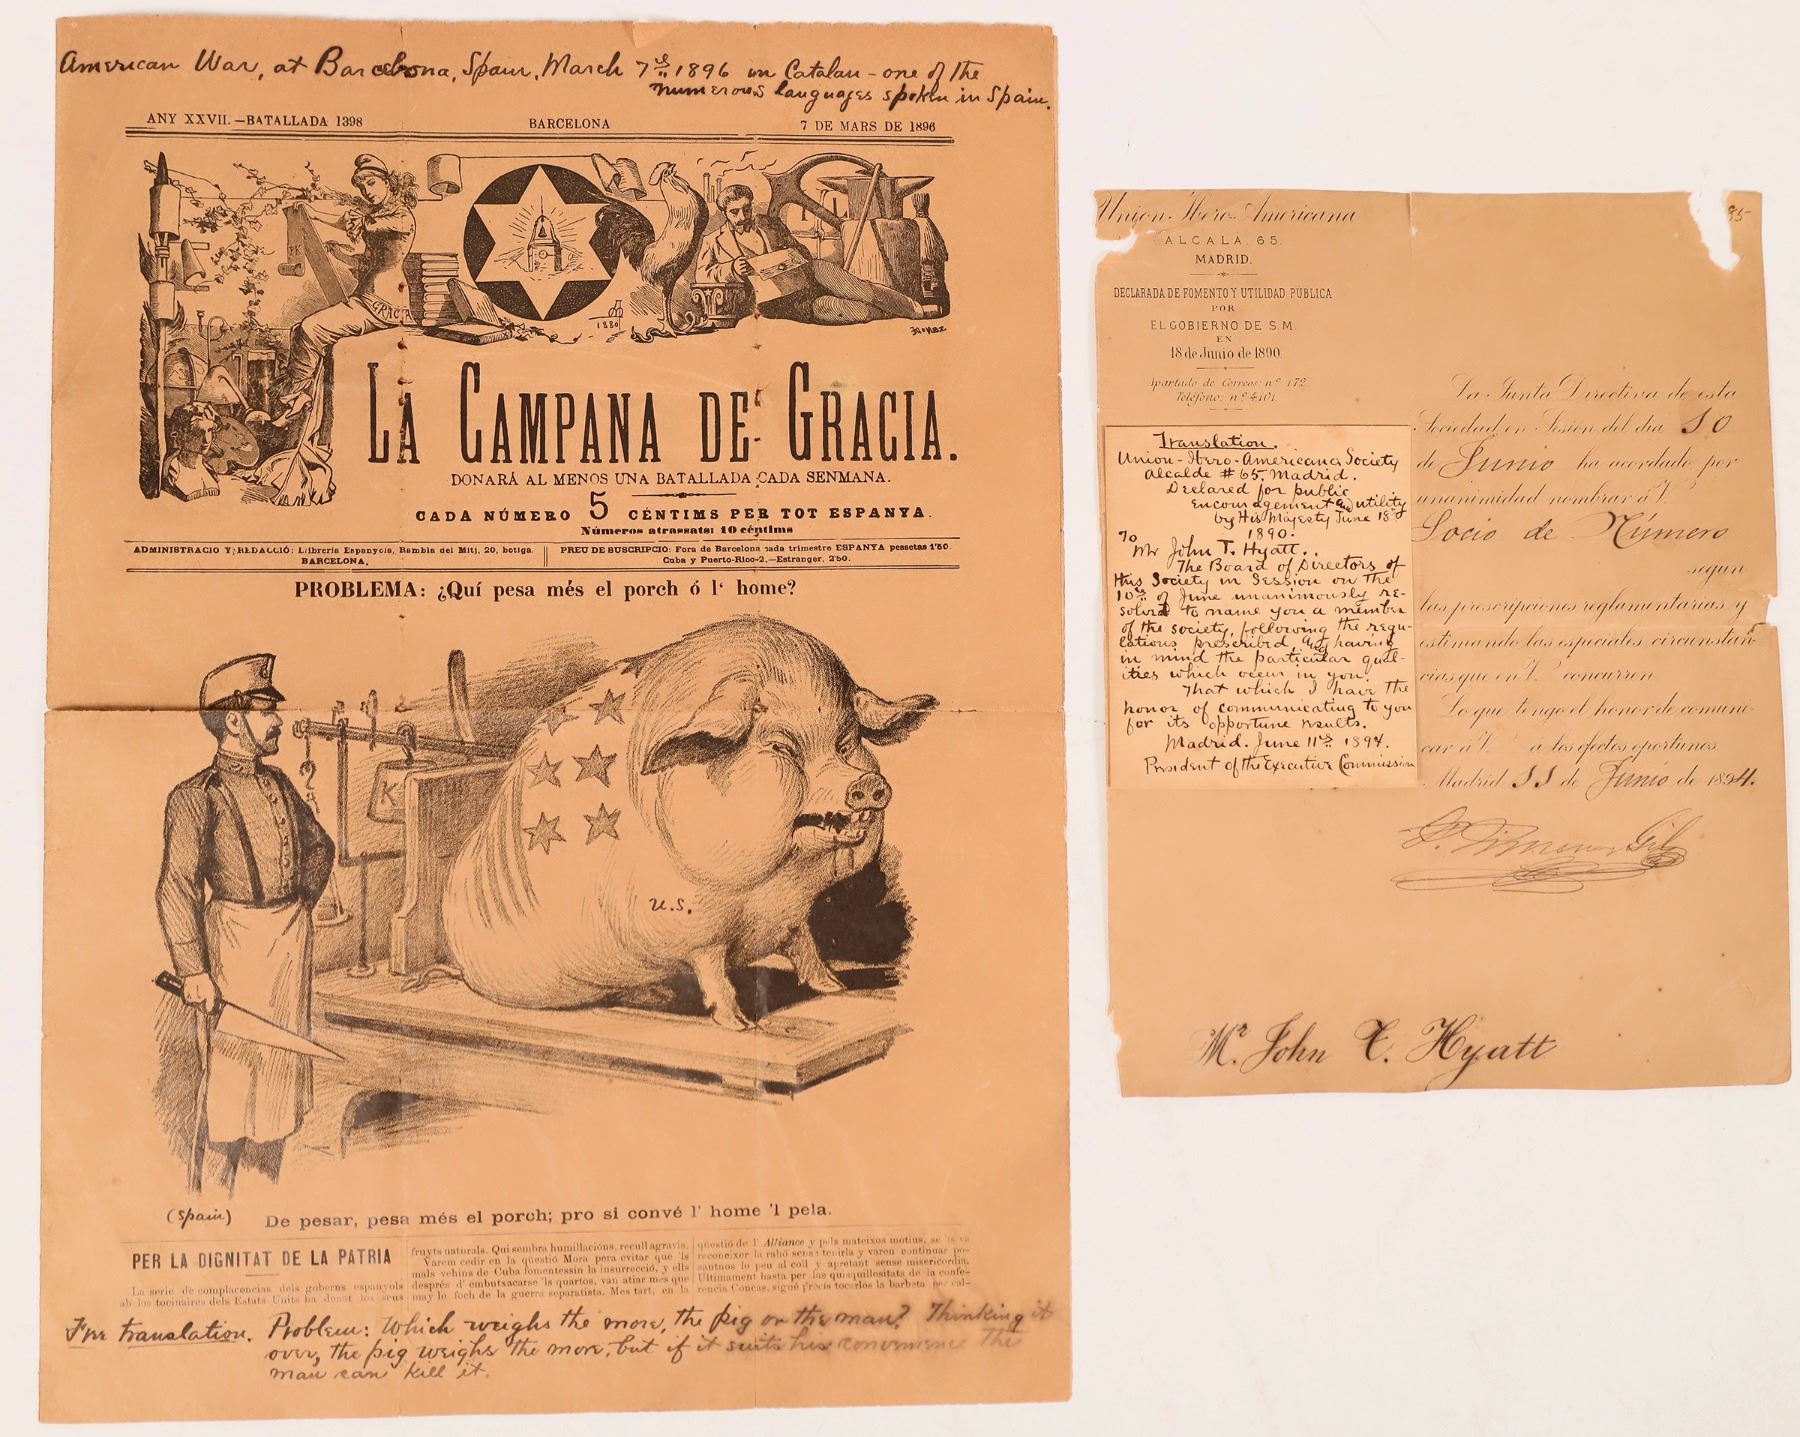 American War, at Barcelona, Spain, March 7th 1896 in Catalan - one of the
numerous languages spoken in Spain.
ANY XXVII.—BATALLADA 1398
BARCELONA
7 DE MARS DE 1896
PK
GRACIA
1880
LA CAMPANA DE GRACIA.
DONARÁ AL MENOS UNA BATALLADA CADA SENMANA.
CADA NÚMERO 5 CÉNTIMS PER TOT ESPANYA.
Números atrassats: 10 céntims
ADMINISTRACIO Y REDACCIÓ: Llibreria Espanyola, Rambla del Mitj, 20, botiga.
BARCELONA.
PREU DE SUSCRIPCIO: Fora de Barcelona cada trimestre ESPANYA pessetas 1'50.
Cuba y Puerto-Rico 2.—Estranger, 2'50.
PROBLEMA: ¿Quí pesa més el porch ó l' home?
K
U.S.
(Spain)
De pesar, pesa més el porch; pro si convé l' home 'l pela.
PER LA DIGNITAT DE LA PATRIA
La serie de complacencias dels goberns espanyols
ab los tocinaires dels Estats Units ha donat los seus
fruyts naturals. Qui sembra humillacións, recull agravis.
Varem cedir en la qüestió Mora pera evitar que 'ls
mals vehins de Cuba fomentessin la insurrecció, y ells
després d' embutxacarse 'ls quartos, van atiar mes que
may lo foch de la guerra separatista. Mes tart, en la
qüestió de l' Alliance y pels mateixos motius, se 'ls va
reconeixer la rahó sense tenirla y varen continuar po-
santnos lo peu al coll y apretant sense misericordia.
Ultimament hasta per las quisquillositats de la confe-
rencia Concas, sigué precís tocarlos la barbeta per cal-
Free translation. Problem: Which weighs the more, the pig or the man? Thinking it
over, the pig weighs the more, but if it suits his convenience the
man can kill it.
Union Ibero-Americana
ALCALÁ. 65.
MADRID.
DECLARADA DE FOMENTO Y UTILIDAD PÚBLICA
POR
EL GOBIERNO DE S.M.
EN
18 de Junio de 1890.
Apartado de Correos: nº 172
Teléfono: nº 4101.
Translation.
Union-Ibero-Americana Society
Alcalde #65. Madrid.
Declared for public
Encouragement and utility
by His Majesty June 18th
1890.
To
Mr John T. Hyatt.
The Board of Directors of
this Society in Session on the
10th of June unanimously re-
solved to name you a member
of the society, following the regu-
lations prescribed, and having
in mind the particular qual-
ities which occur in you.
That which I have the
honor of communicating to you
for its opportune results.
Madrid. June 11th. 1894.
President of the Executive Commission
La Junta Directiva de esta
Sociedad en Sesión del dia 10
de Junio ha acordado por
unanimidad nombrar á V.
Socio de Número
segun
las prescripciones reglamentarias y
estimando las especiales circunstan-
cias que en V. concurren
Lo que tengo el honor de comuni-
car á V. á los efectos oportunos.
Madrid 11 de Junio de 1894.
Mr. John T. Hyatt